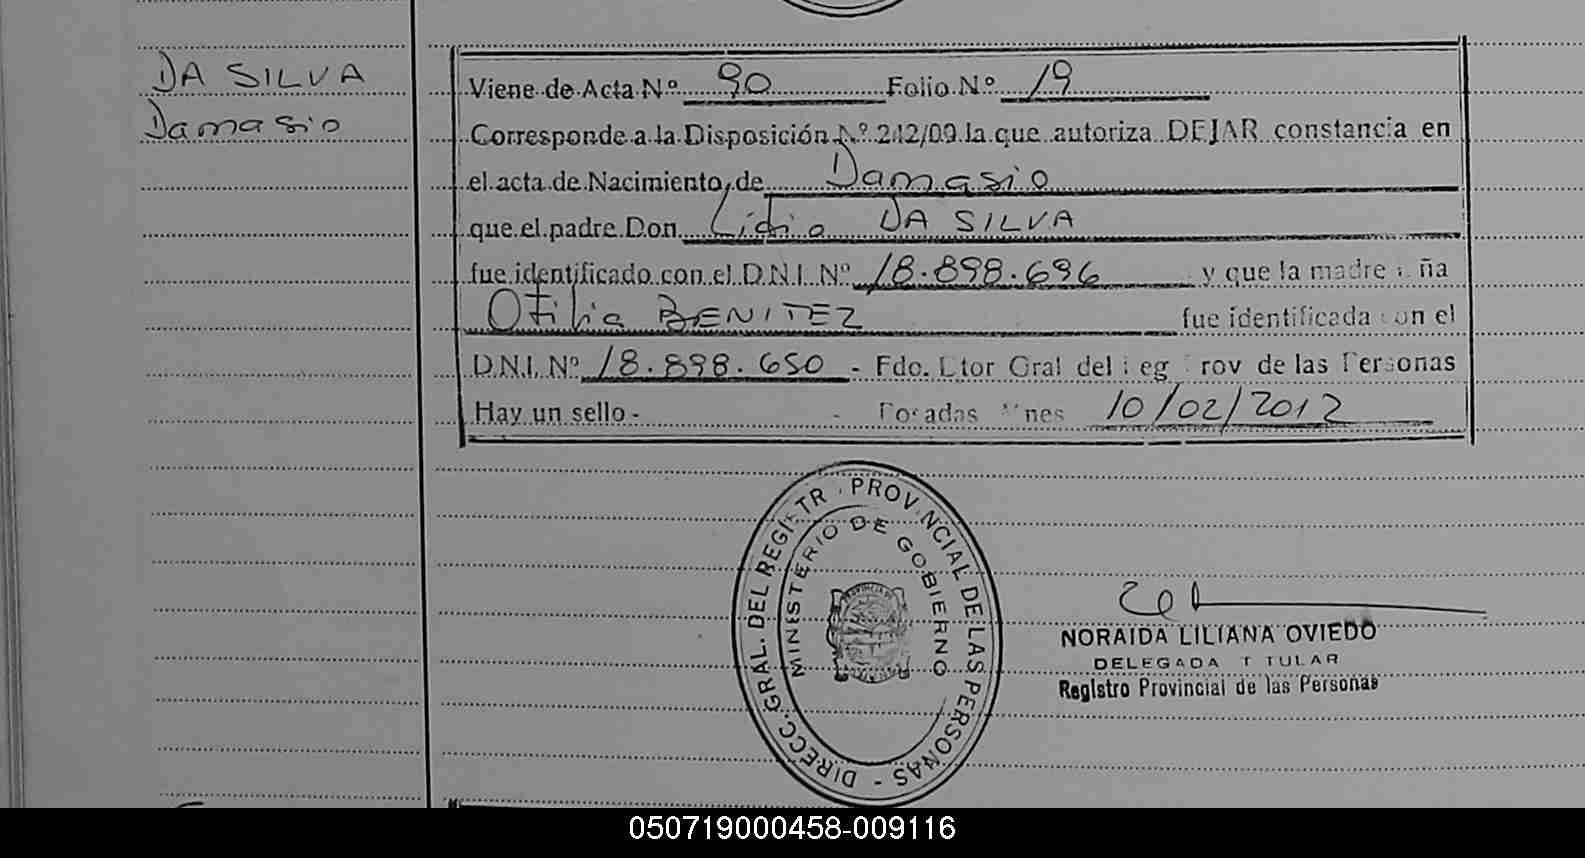 DA SILVA
Damasio
Viene de Acta Nº 90 Folio Nº 19
Corresponde a la Disposición Nº 212/09 la que autoriza DEJAR constancia en
el acta de Nacimiento, de Damasio
que el padre Don Lidio DA SILVA
fue identificado con el D.N.I. Nº 18.898.696 y que la madre ña
Otilia BENITEZ fue identificada con el
D.N.I. Nº 18.898.650 - Fdo. Dtor Gral del Reg Prov de las Personas
Hay un sello - - Posadas Mnes 10/02/2012
DIRECC. GRAL. DEL REGISTR. PROVINCIAL DE LAS PERSONAS -
MINISTERIO DE GOBIERNO
NORAIDA LILIANA OVIEDO
DELEGADA TITULAR
Registro Provincial de las Personas
050719000458-009116